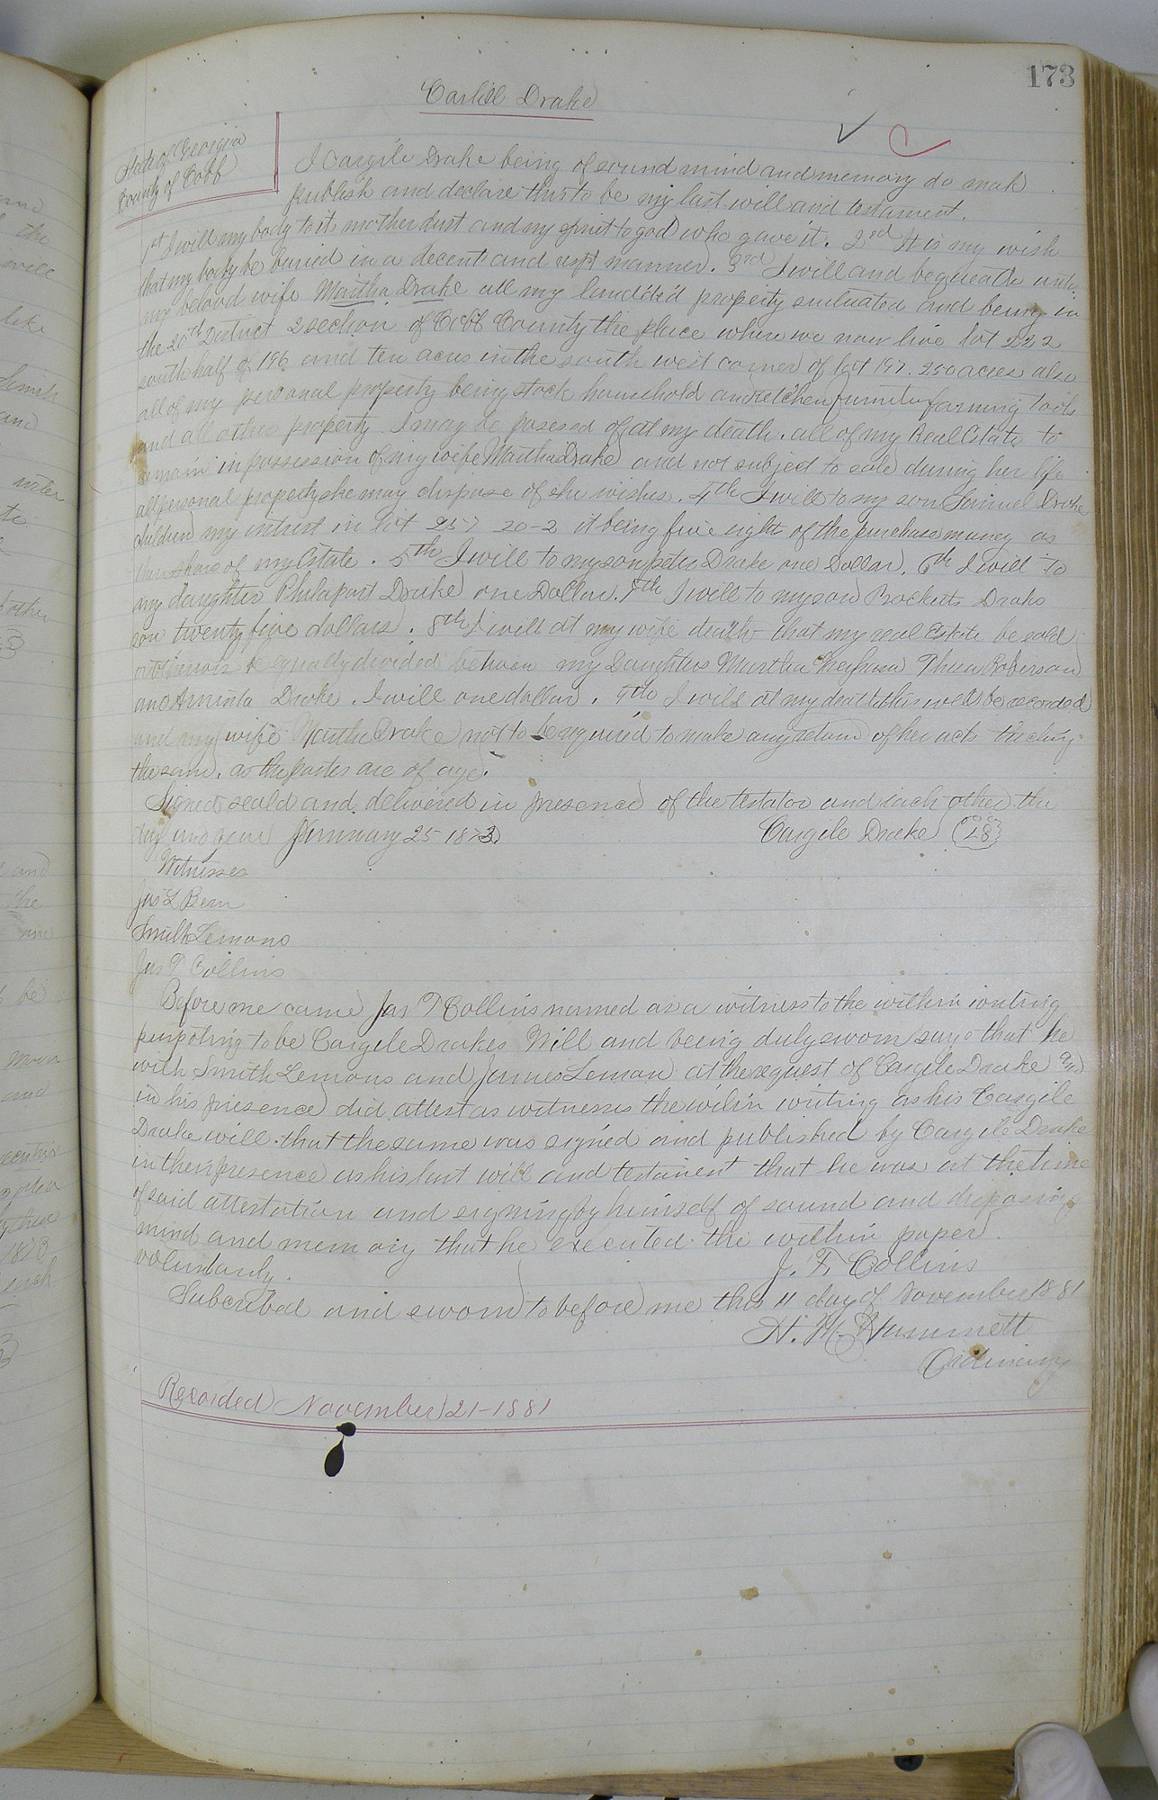 173
Carlile Drake
State of Georgia
County of Cobb
I Cargile Drake being of sound mind and memory do mak
publish and declare this to be my last will and testament.
1st I will my body to its mother dust and my spirit to god who gave it. 2nd It is my wish
that my body be buried in a decent and manner. 3rd I will and bequeath unto
my beloved wife Martha Drake all my landed property situated and being in
the 20th District 2 section of Cobb County the place where we now live lot 222
south half of 196 and ten acres in the south west corner of lot 197. 250 acres also
all of my personal property being stock household and kitchen furniture farming tools
and all other property I may be posesed of at my death. all of my Real Estate to
remain in possession of my wife Martha Drake and not subject to sale during her life
all personal property she may dispose of she wishes. 4th I will to my son Samuel Drake
children my intrest in lot 257 20-2 it being five eight of the purchase money as
their share of my Estate. 5th I will to my son peter Drake one Dollar. 6th I will to
my daughter Drake one Dollar. 7th I will to my son Drake
son twenty five dollars. 8th I will at my wife death that my real Estate be sold
equally divided between my Daughters Martha Roberson
and Drake. I will one dollar. 9th I will at my death this will be recorded
and my wife Martha Drake not to be required to make any return of her acts
the same. as the parties are of age.
Signed seald and delivered in presence of the testator and each other the
day and year January 25 1873 Cargile Drake (LS)
Witnesses
Jas L Bem
Smith Lemons
Jas T Collins
Before me came Jas T Collins named as a witness to the within writing
purpoting to be Cargile Drakes Will and being duly sworn says that he
with Smith Lemons and James Leman at the request of Cargile Drake &
in his presence did attest as witnesses the within writing as his Cargile
Drake will. that the same was signed and published by Cargile Drake
in their presence as his last will and testament that he was at the time
of said attestation and signing by himself of sound and disposing
mind and memory that he executed the within paper
voluntarily. J. T. Collins
Subcribed and sworn to before me this 11 day of November 1881
H. M. Hammett
Ordinary
Recorded November 21-1881